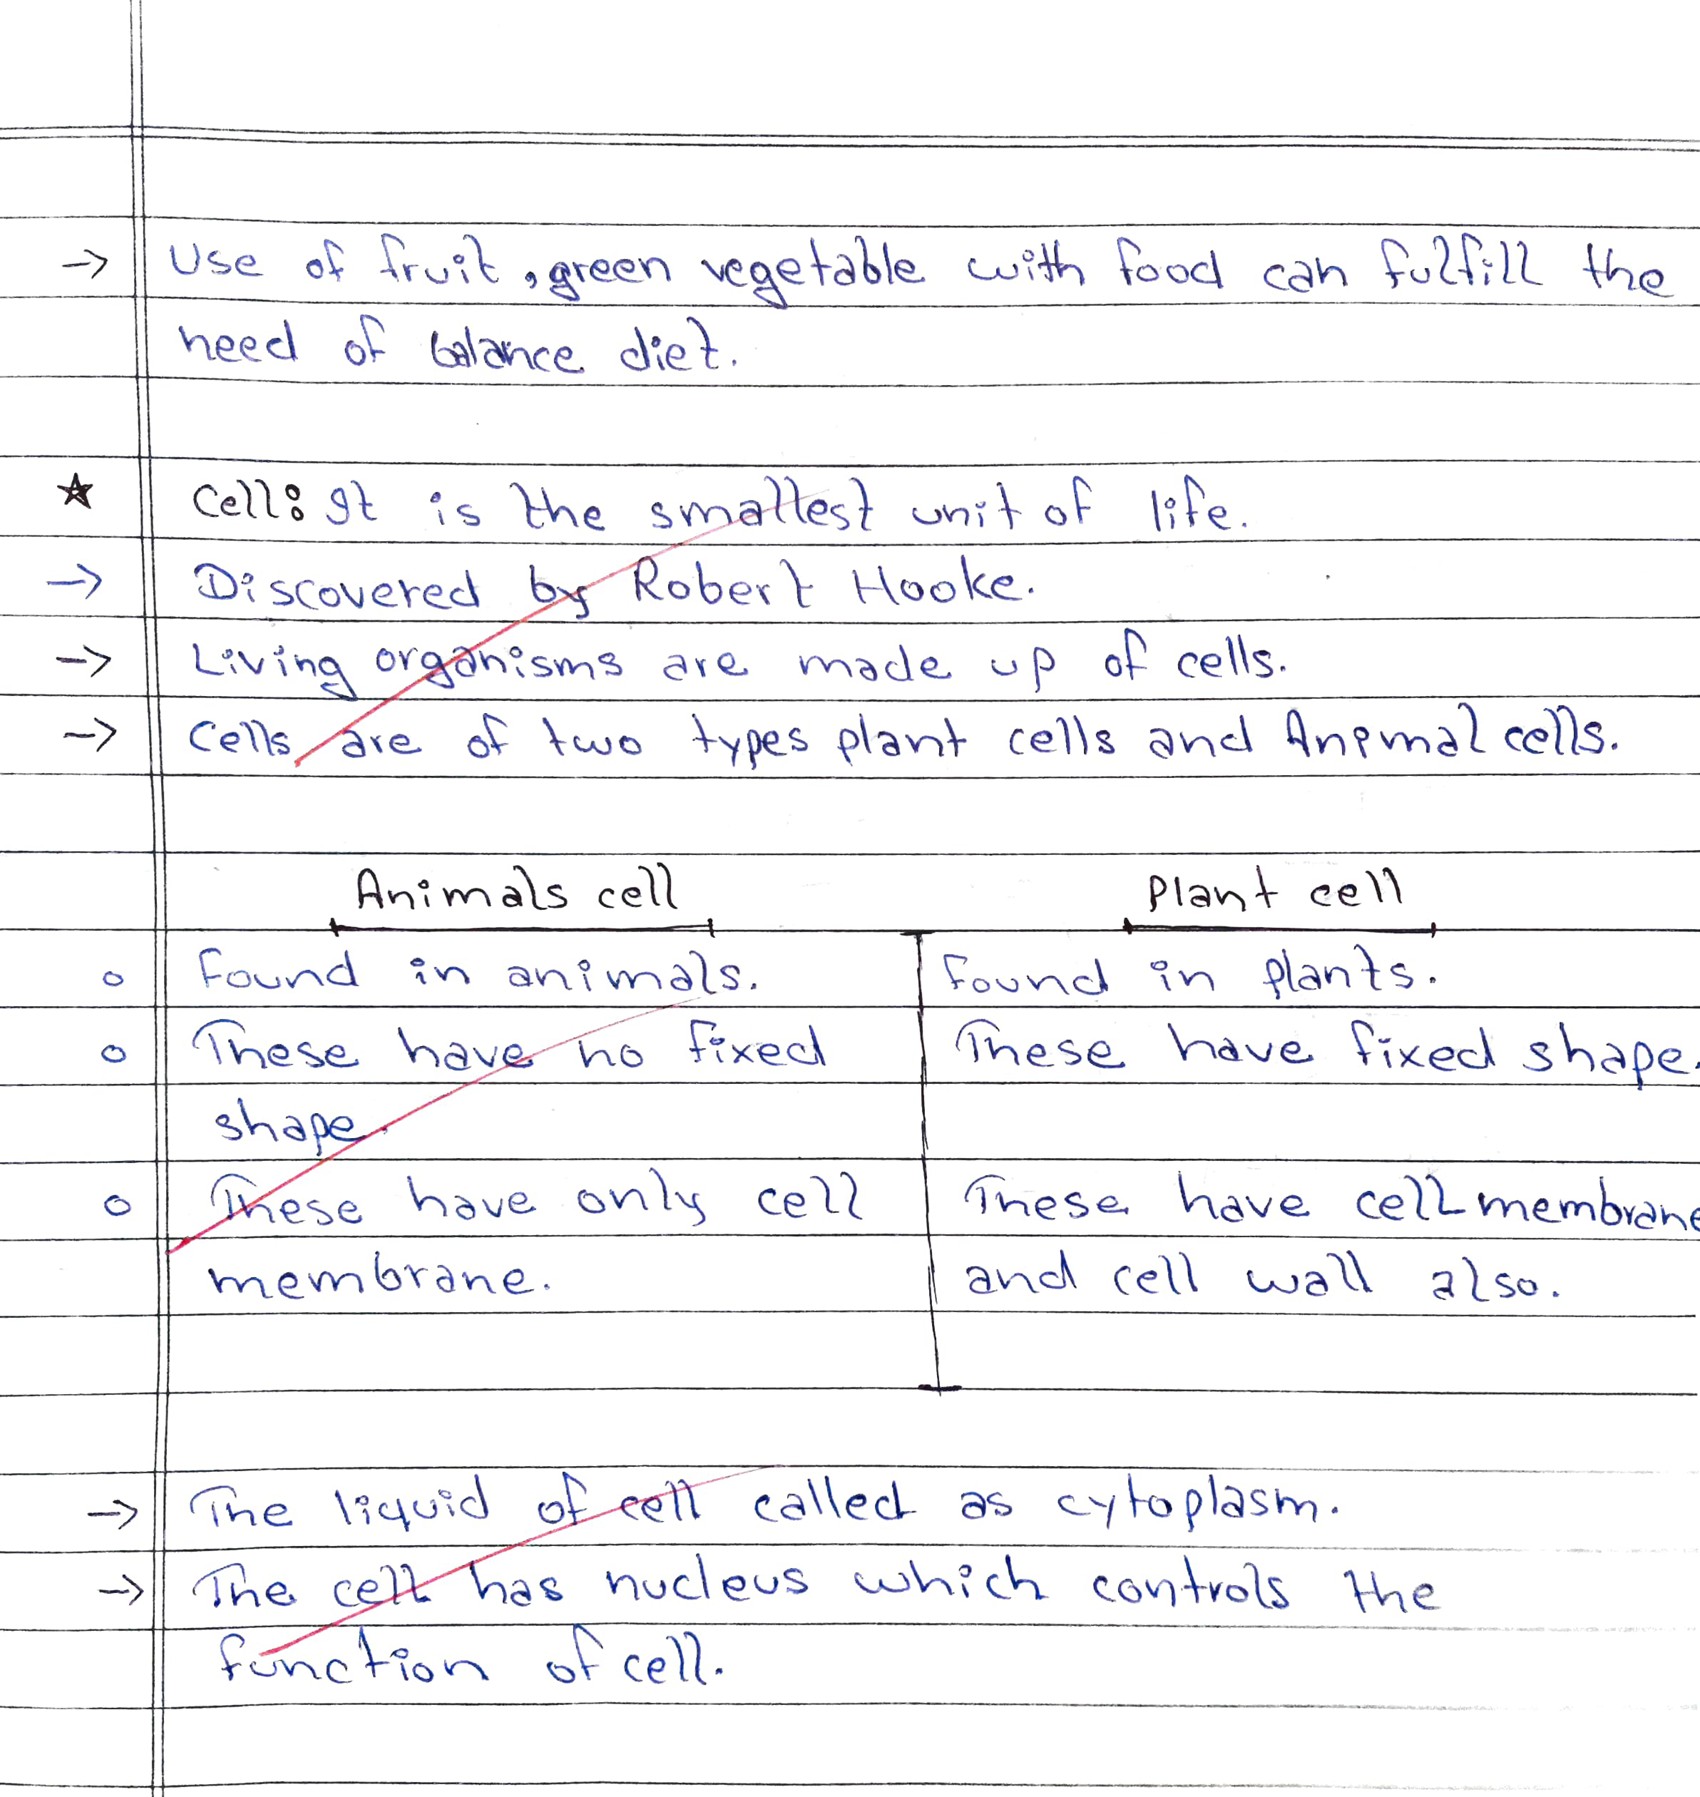 → Use of fruit, green vegetable with food can fulfill the
need of balance diet.
☆ Cell: It is the smallest unit of life.
→ Discovered by Robert Hooke.
→ Living organisms are made up of cells.
→ Cells are of two types plant cells and Anpmal cells.
Animals cell Plant cell
o Found in animals. Found in plants.
o These have no fixed These have fixed shape.
shape.
o These have only cell These have cell membrane
membrane. and cell wall also.
→ The liquid of cell called as cytoplasm.
→ The cell has nucleus which controls the
function of cell.